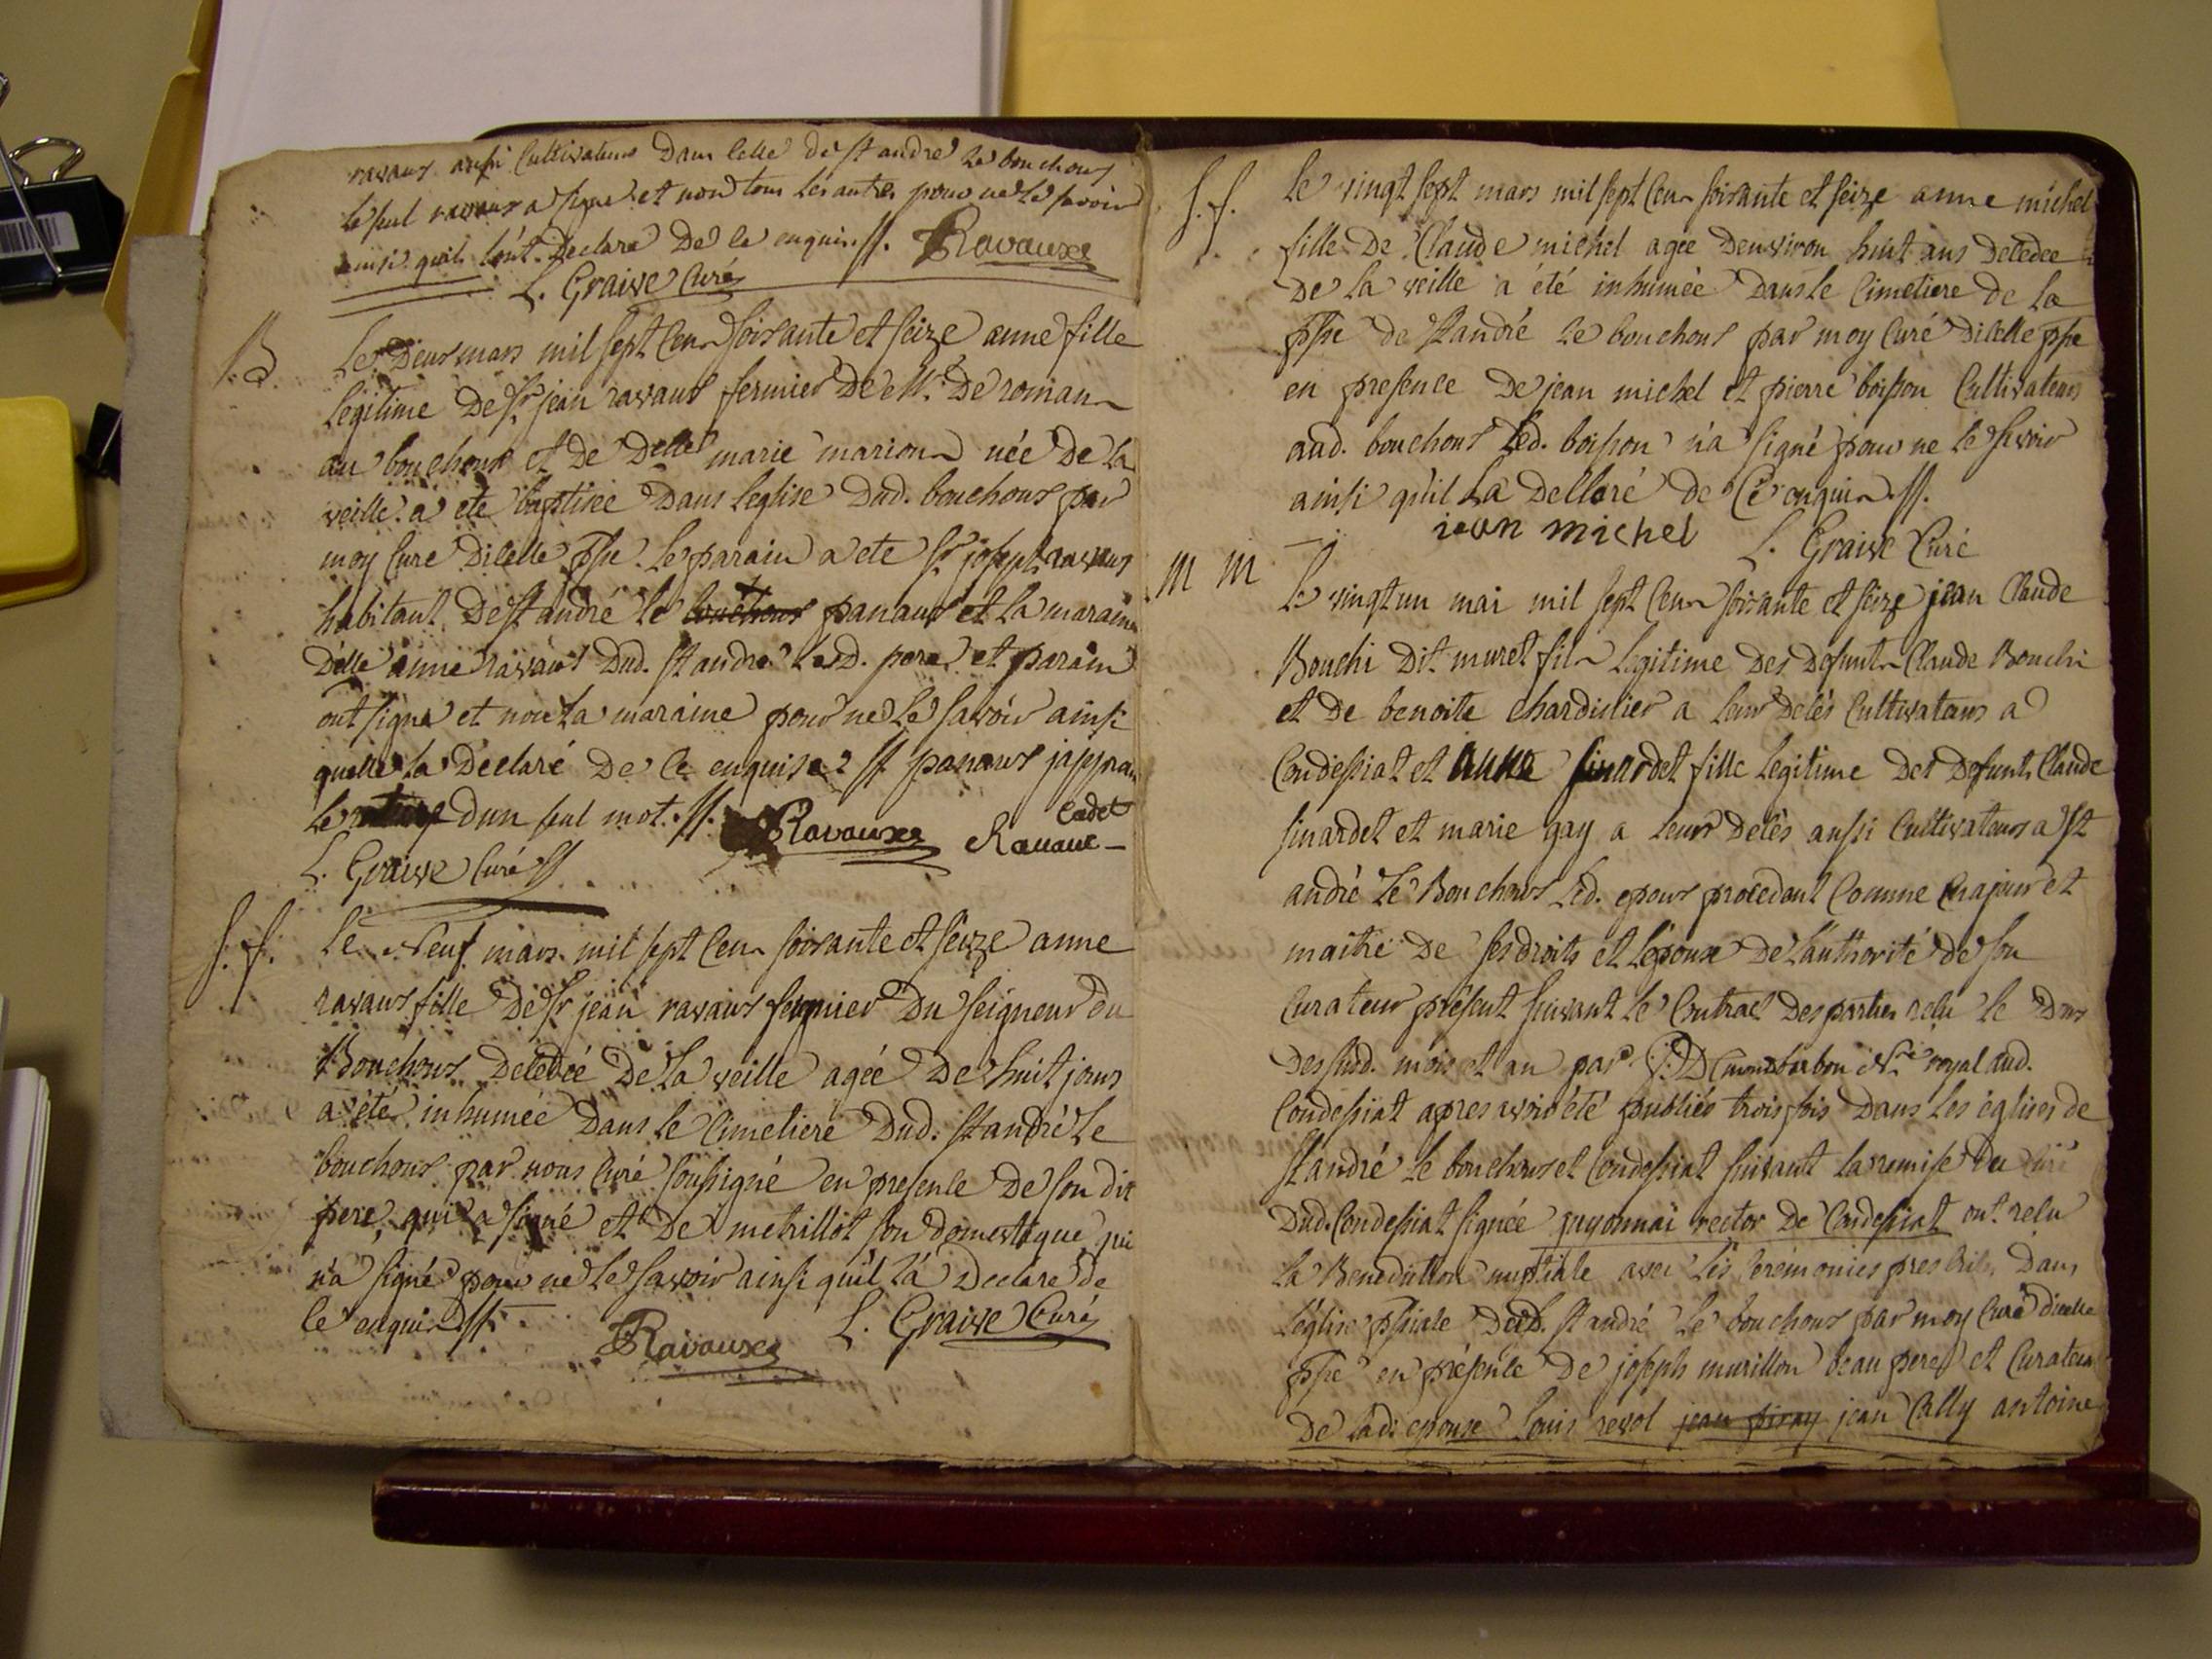 ravaux aussi Cultivateurs Dans Celle de st andré Le bouchoux
le seul ravaux a signé et non tous les autres pour ne Le savoir
ainsi quils l'ont Declaré De Ce enquis ://. Ravauxe
L. Graive Curé
B.
Le Deux mars mil sept Cens soixante et seize anne fille
Legitime De sr jean ravaux fermier De Mr. De romans
au bouchoux et de Delle marie marions née De la
veille a eté baptisée Dans leglise Dud. bouchoux par
moy Curé Dicelle ppe. Le parain a eté sr joseph ravaux
habitant De st andré le bouchoux panaux et La maraine
Delle anne ravaux Dud. st andré Lesd. pere et parain
ont signé et non La maraine pour ne Le savoir ainsi
quelle la Déclaré De Ce enquise // panaux japprou
le dun seul mot. //. Ravauxe Ravaux Cadet
L. Graive Curé //
S. S.
Le Neuf mars mil sept Cens soixante et seize anne
ravaux fille De sr jean ravaux fermier Du seigneur du
Bouchoux Decedée De La veille agée De huit jours
a été inhumée Dans Le Cimetiere Dud. st andré Le
bouchoux par nous Curé soussigné en presence De son dit
pere, qui a signé et De metrillot son domestique qui
n'a signé pour ne Le savoir ainsi qu'il l'a Declaré de
Ce enquis //.
Ravauxe L. Graive Curé
S. S.
Le vingt sept mars mil sept Cens soixante et seize anne michel
fille De Claude michel agée Denviron huit ans Decedée
De La veille a été inhumée Dans Le Cimetiere de La
ppe de st andré Le bouchoux par moy Curé Dicelle ppe
en presence De jean michel et pierre boisson Cultivateurs
aud. bouchoux Led. boisson n'a signé pour ne Le savoir
ainsi qu'il La Declaré de Ce enquis //.
iean michel L. Graive Curé
m m
Le vingt un mai mil sept Cens soixante et seize jean Claude
Bouchi Dit muret fils Legitime Des Defunts Claude Bouchi
et De benoite chardinier a Leur Decès Cultivateurs a
Condessiat et anne sinardet fille Legitime Des Defunts Claude
sinardet et marie gay a Leurs Decès aussi Cultivateurs a st
andré Le Bouchoux Led. epoux procedant Comme majeur et
maitre De ses droits et L'épouse De L'authorité de son
Curateur présent suivant Le Contract Des parties relu le Dix
Des sud. mois et an par Sr. D Cmonsbarbon Nre royal aud.
Condessiat apres avoir été publiés trois fois Dans Les églises de
st andré Le bouchoux et Condessiat suivant La remise Du Curé
Dud. Condessiat signée guyonnai rector De Condessiat ont relu
La Benediction nuptiale avec Les Ceremonies prescrites Dans
L'église ppiale Dud. st andré Le bouchoux par moy Curé Dicelle
ppe en présence De joseph murillon beau pere et Curateur
De Lad. epouse Louis revol jean piray jean Cally antoine